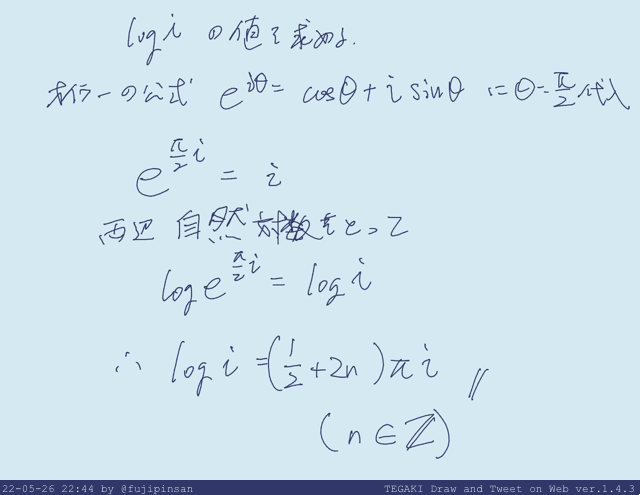 log i の値を求める.
オイラーの公式 e^{iθ} = cosθ + i sinθ にθ=π/2代入
e^{π/2 i} = i
両辺 自然対数をとって
log e^{π/2 i} = log i
∴ log i = (1/2 + 2n) π i //
(n ∈ ℤ)
22-05-26 22:44 by @fujipinsan TEGAKI Draw and Tweet on Web ver.1.4.3